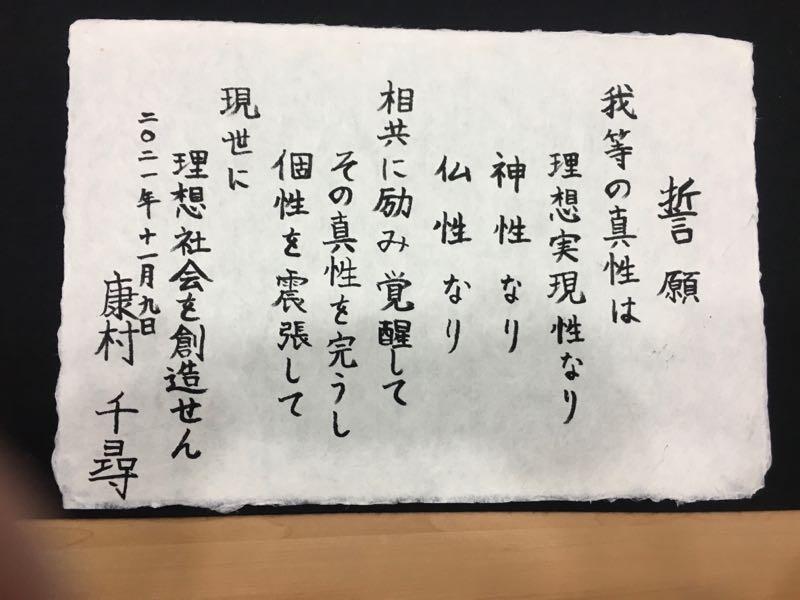 誓願
我等の真性は
理想実現性なり
神性なり
仏性なり
相共に励み覚醒して
その真性を完うし
個性を震張して
現世に
理想社会を創造せん
二〇二一年十一月九日
康村 千尋